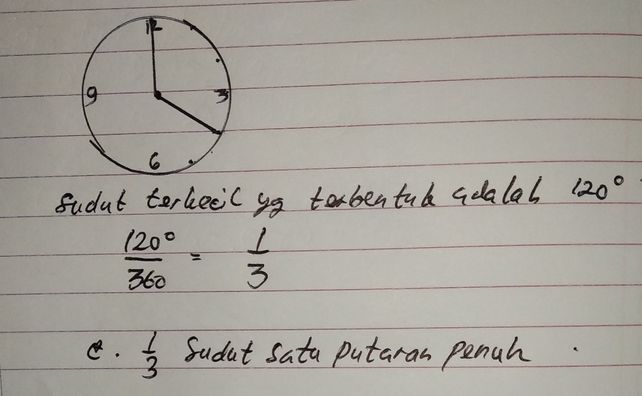 12
9 3
6
Sudut terkecil yg terbentuk adalah 120°
120° / 360 = 1 / 3
c. 1/3 Sudut satu putaran penuh.